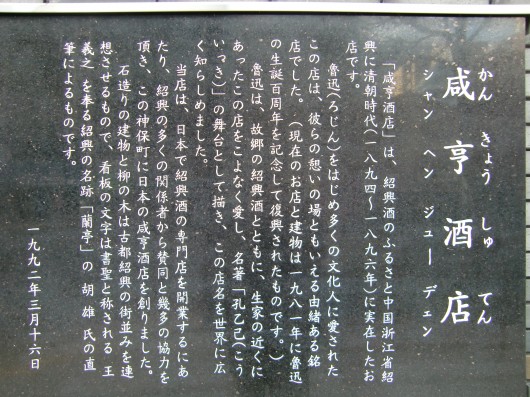 咸亨酒店
かんきょうしゅてん
シャンヘンジューデェン
「咸亨酒店」は、紹興酒のふるさと中国浙江省紹
興に清朝時代(一八九四〜一八九六年)に実在したお
店です。
魯迅(ろじん)をはじめ多くの文化人に愛された
この店は、彼らの憩いの場ともいえる由緒ある銘
店でした。(現在のお店と建物は一九八一年に魯迅
の生誕百周年を記念して復興されたものです。)
魯迅は、故郷の紹興酒とともに、生家の近くに
あったこの店をこよなく愛し、名著「孔乙己(こう
いっき)」の舞台として描き、この店名を世界に広
く知らしめました。
当店は、日本で紹興酒の専門店を開業するにあ
たり、紹興の多くの関係者から賛同と幾多の協力を
頂き、この神保町に日本の咸亨酒店を創りました。
石造りの建物と柳の木は古都紹興の街並みを連
想させるもので、看板の文字は書聖と称される 王
羲之 を奉る紹興の名跡「蘭亭」の 胡 雄 氏の直
筆によるものです。
一九九二年三月十六日